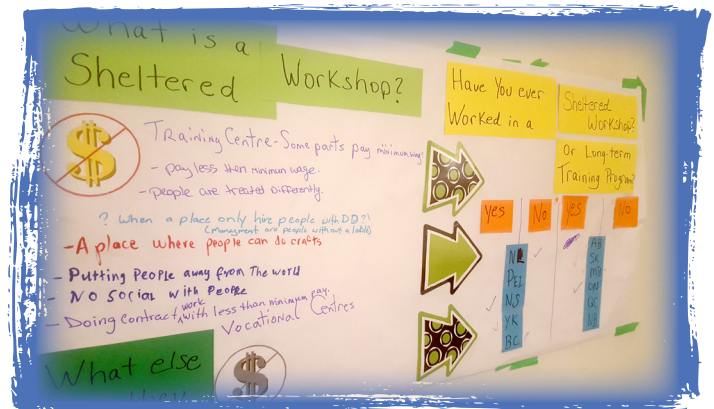 What is a
Sheltered
Workshop?
Training Centre - Some parts pay minimum wage
- pay less then minimum wage.
- people are treated differently.
? When a place only hire people with DD?
(Managment are people without a lable)
- A place where people can do crafts
- Putting People away from The world
- No Social with People
- Doing contract work with less than minimum pay.
Vocational Centres
What else
they
Have You ever
Worked in a
Sheltered
Workshop?
Or Long-term
Training Program?
Yes
No
Yes
No
NL
PEI
NS
YK
BC
AB
SK
MB
ON
QC
NB